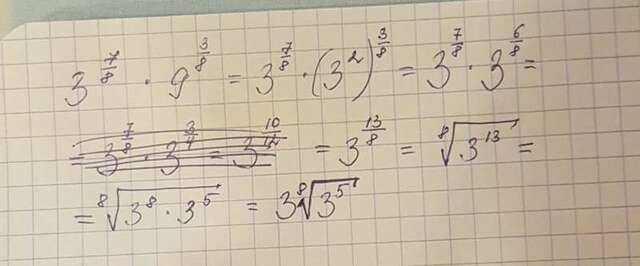 3^{7/8} · 9^{3/8} = 3^{7/8} · (3^2)^{3/8} = 3^{7/8} · 3^{6/8} =
= 3^{7/8} · 3^{3/4} = 3^{10/12} = 3^{13/8} = \sqrt[8]{3^{13}} =
= \sqrt[8]{3^8 · 3^5} = 3\sqrt[8]{3^5}